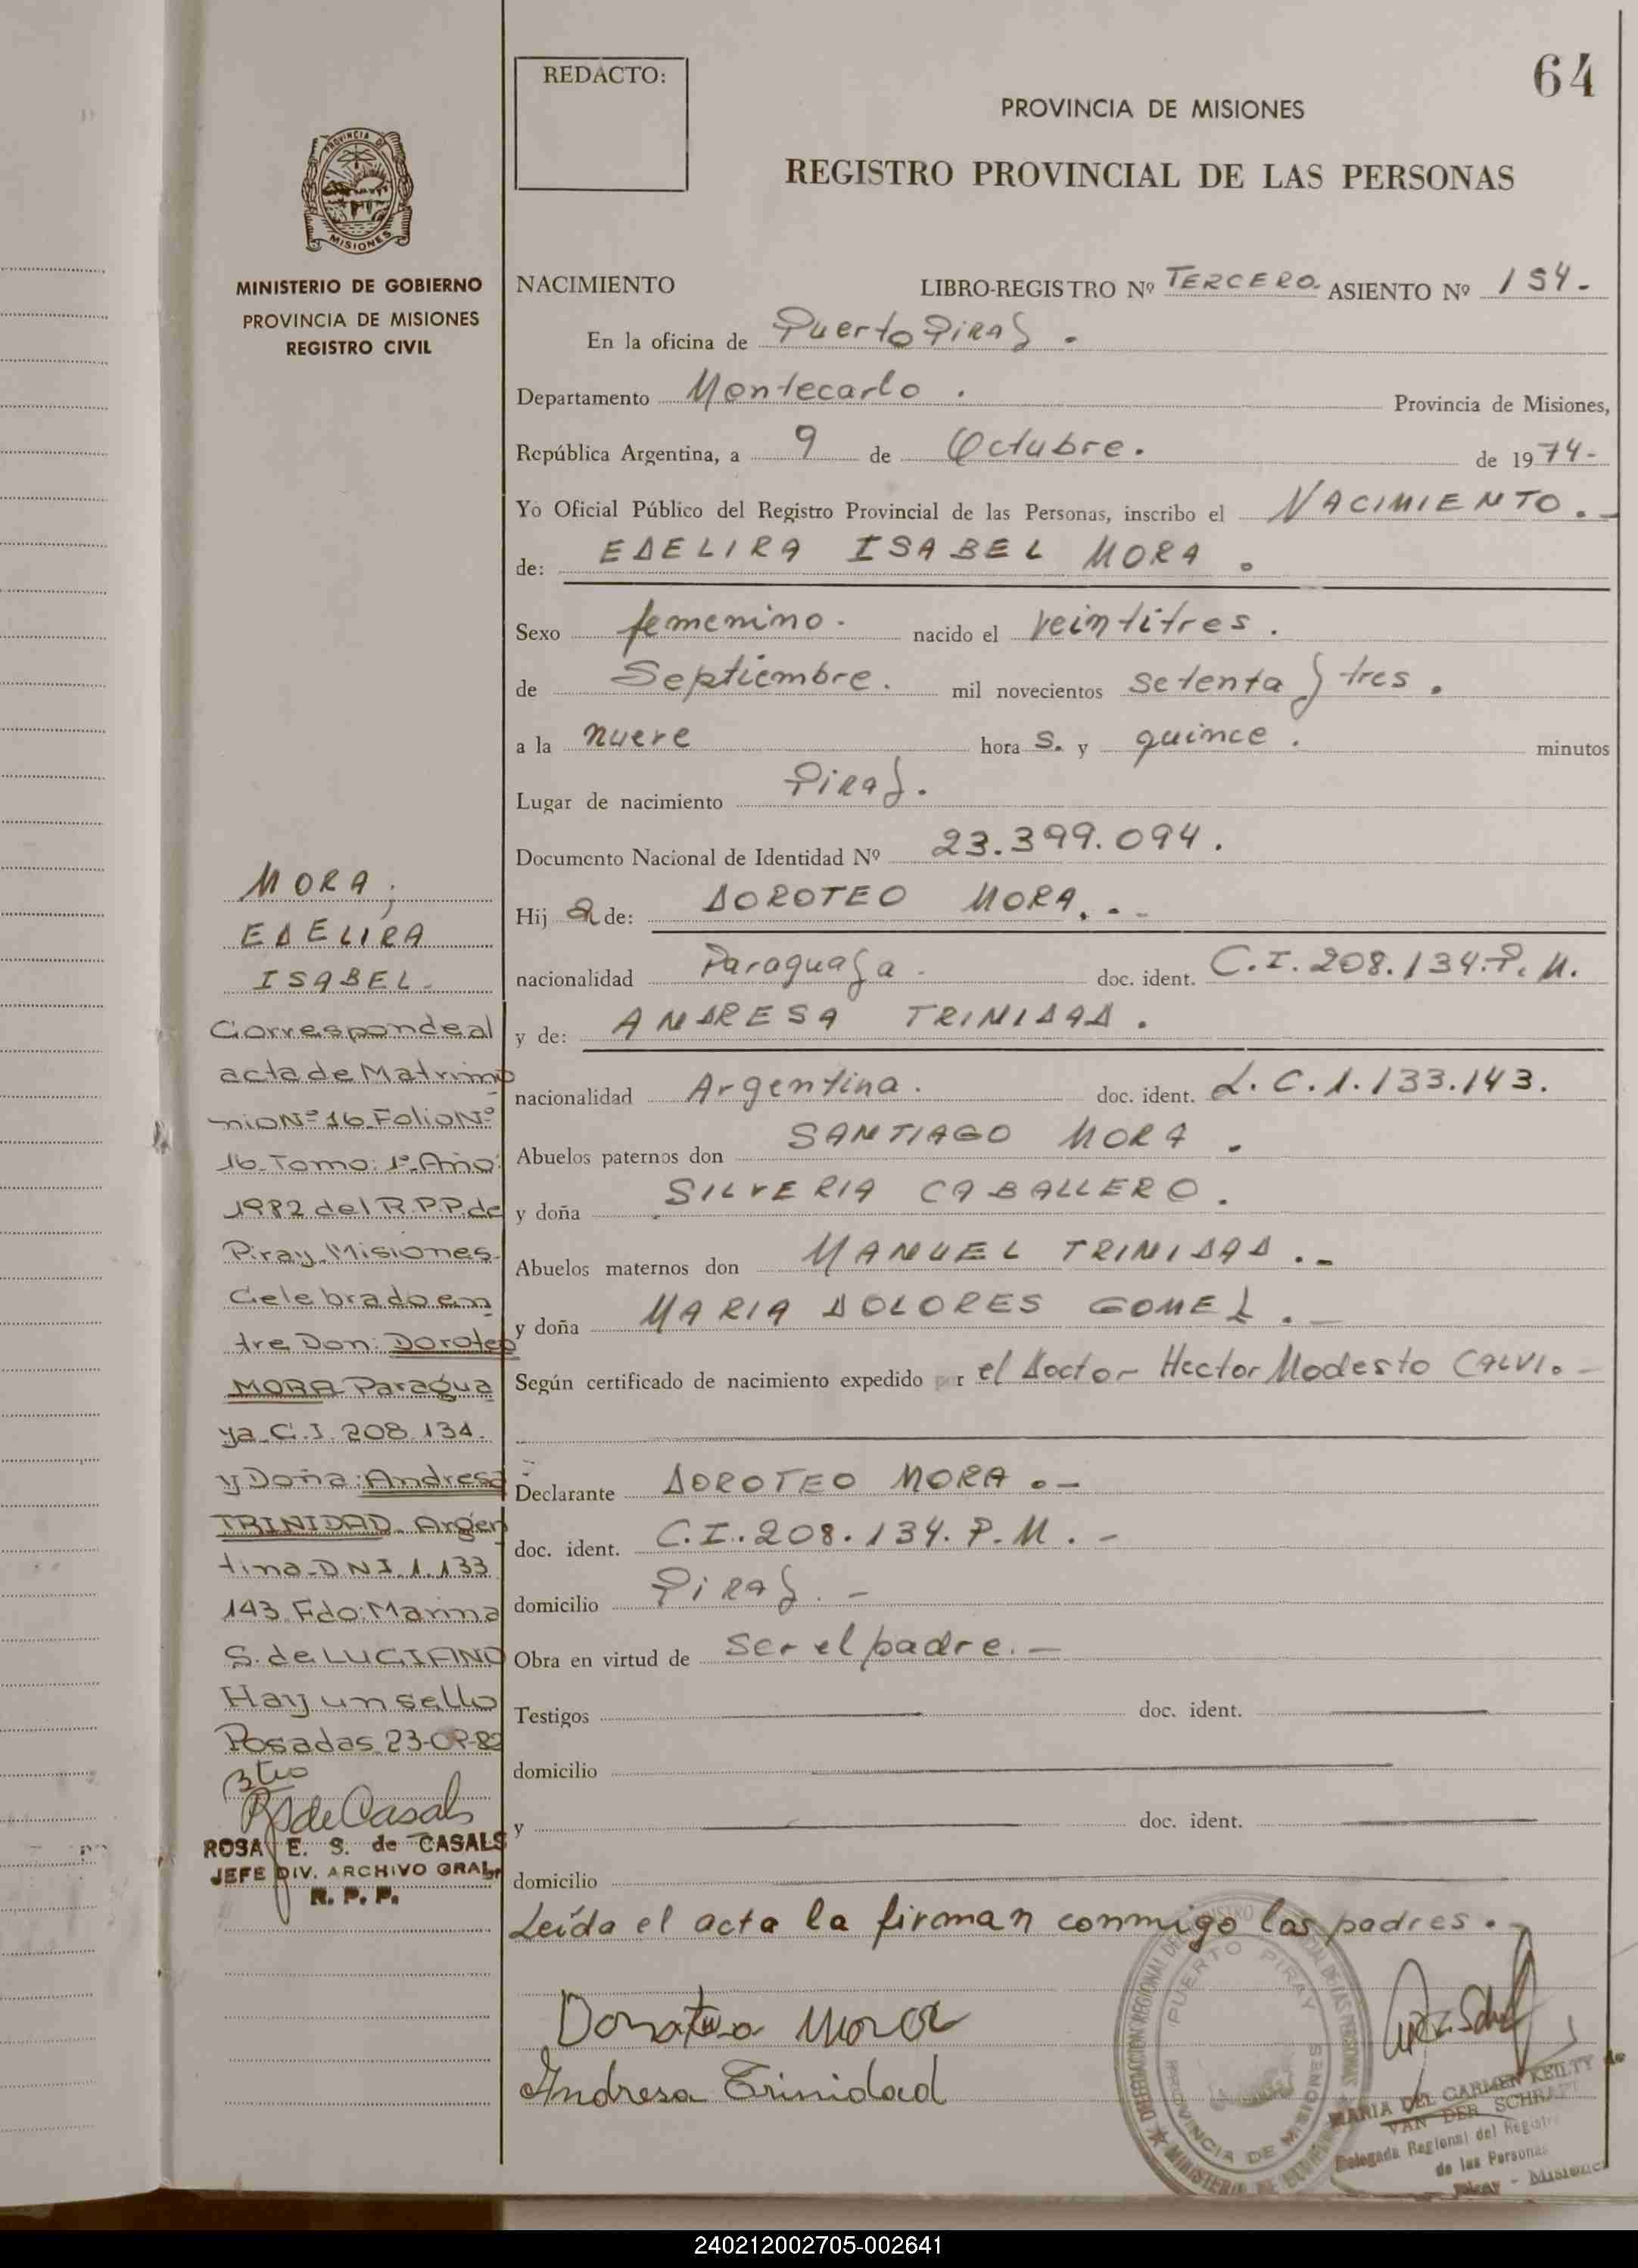 64
REDACTO:
PROVINCIA DE MISIONES
REGISTRO PROVINCIAL DE LAS PERSONAS
PROVINCIA DE
MISIONES
MINISTERIO DE GOBIERNO
PROVINCIA DE MISIONES
REGISTRO CIVIL
NACIMIENTO LIBRO-REGISTRO Nº TERCERO. ASIENTO Nº 154.-
En la oficina de Puerto Piray.
Departamento Montecarlo. Provincia de Misiones,
República Argentina, a 9 de Octubre. de 1974-
Yo Oficial Público del Registro Provincial de las Personas, inscribo el NACIMIENTO.-
de: EDELIRA ISABEL MORA.
Sexo femenino. nacido el veintitres.
de Septiembre. mil novecientos setenta y tres.
a la nueve hora s. y quince. minutos
Lugar de nacimiento Piray.
Documento Nacional de Identidad Nº 23.399.094.
Hij a de: DOROTEO MORA..-
nacionalidad Paraguaya. doc. ident. C.I.208.134.P.M.
y de: ANDRESA TRINIDAD.
nacionalidad Argentina. doc. ident. L.C.1.133.143.
Abuelos paternos don SANTIAGO MORA.
y doña SILVERIA CABALLERO.
Abuelos maternos don MANUEL TRINIDAD.-
y doña MARIA DOLORES GOMEZ.-
Según certificado de nacimiento expedido por el Doctor Hector Modesto CALVI.-
Declarante DOROTEO MORA.-
doc. ident. C.I.208.134.P.M.-
domicilio Piray.-
Obra en virtud de ser el padre.-
Testigos doc. ident.
domicilio
y doc. ident.
domicilio
Leída el acta la firman conmigo los padres.-
Andresa Trinidad
MORA;
EDELIRA
ISABEL.
Corresponde al
acta de Matrimo
nio Nº 16 Folio Nº
16 Tomo: 1º Año
1982 del R.P.P. de
Piray Misiones.
Celebrado en
tre Don: Doroteo
MORA Paragua
ya C.I. 208.134.
y Doña: Andresa
TRINIDAD Argen
tina-DNI.1.133
143 Fdo: Marina
S. de LUCIANO
Hay un sello
Posadas 23-09-82
R S de Casals
ROSA E. S. de CASALS
JEFE DIV. ARCHIVO GRAL.
R. P. P.
PUERTO PIRAY
PROVINCIA DE MISIONES
MARIA DEL CARMEN KEILTY de
VAN DER SCHRAFT
Delegada Regional del Registro
de las Personas
Piray - Misiones
240212002705-002641